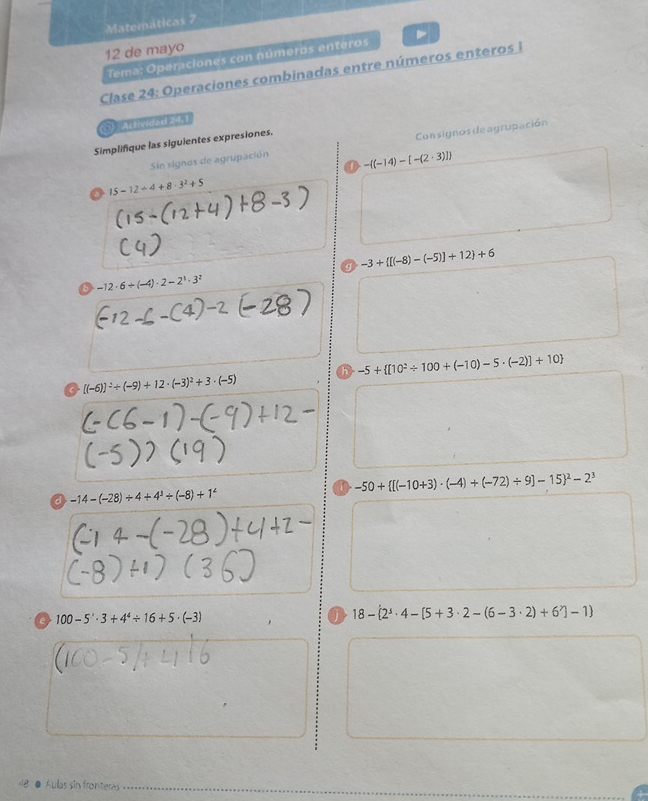 Matemáticas 7
12 de mayo
Tema: Operaciones con números enteros
Clase 24: Operaciones combinadas entre números enteros I
Actividad 24.1
Simplifique las siguientes expresiones.
Sin signos de agrupación
a 15 − 12 ÷ 4 + 8 · 3² + 5
(15-(12+4)+8-3)
(4)
b −12 · 6 ÷ (−4) · 2 − 2³ · 3²
(-12-6-(4)-2 (-28)
c [(−6)]² ÷ (−9) + 12 · (−3)² + 3 · (−5)
(-(6-1)-(-9)+12-
(-5)) (19)
d −14 − (−28) ÷ 4 + 4³ ÷ (−8) + 1⁴
(-14-(-28)+4+2-
(-8)+1) (36)
e 100 − 5 · 3 + 4⁴ ÷ 16 + 5 · (−3)
(100-5)+416
Con signos de agrupación
f −{(−14) − [−(2 · 3)]}
g −3 + {[(−8) − (−5)] + 12} + 6
h −5 + {[10² ÷ 100 + (−10) − 5 · (−2)] + 10}
i −50 + {[(−10+3) · (−4) + (−72) ÷ 9] − 15}² − 2³
j 18 − {2³ · 4 − [5 + 3 · 2 − (6 − 3 · 2) + 6] − 1}
48 Aulas sin fronteras